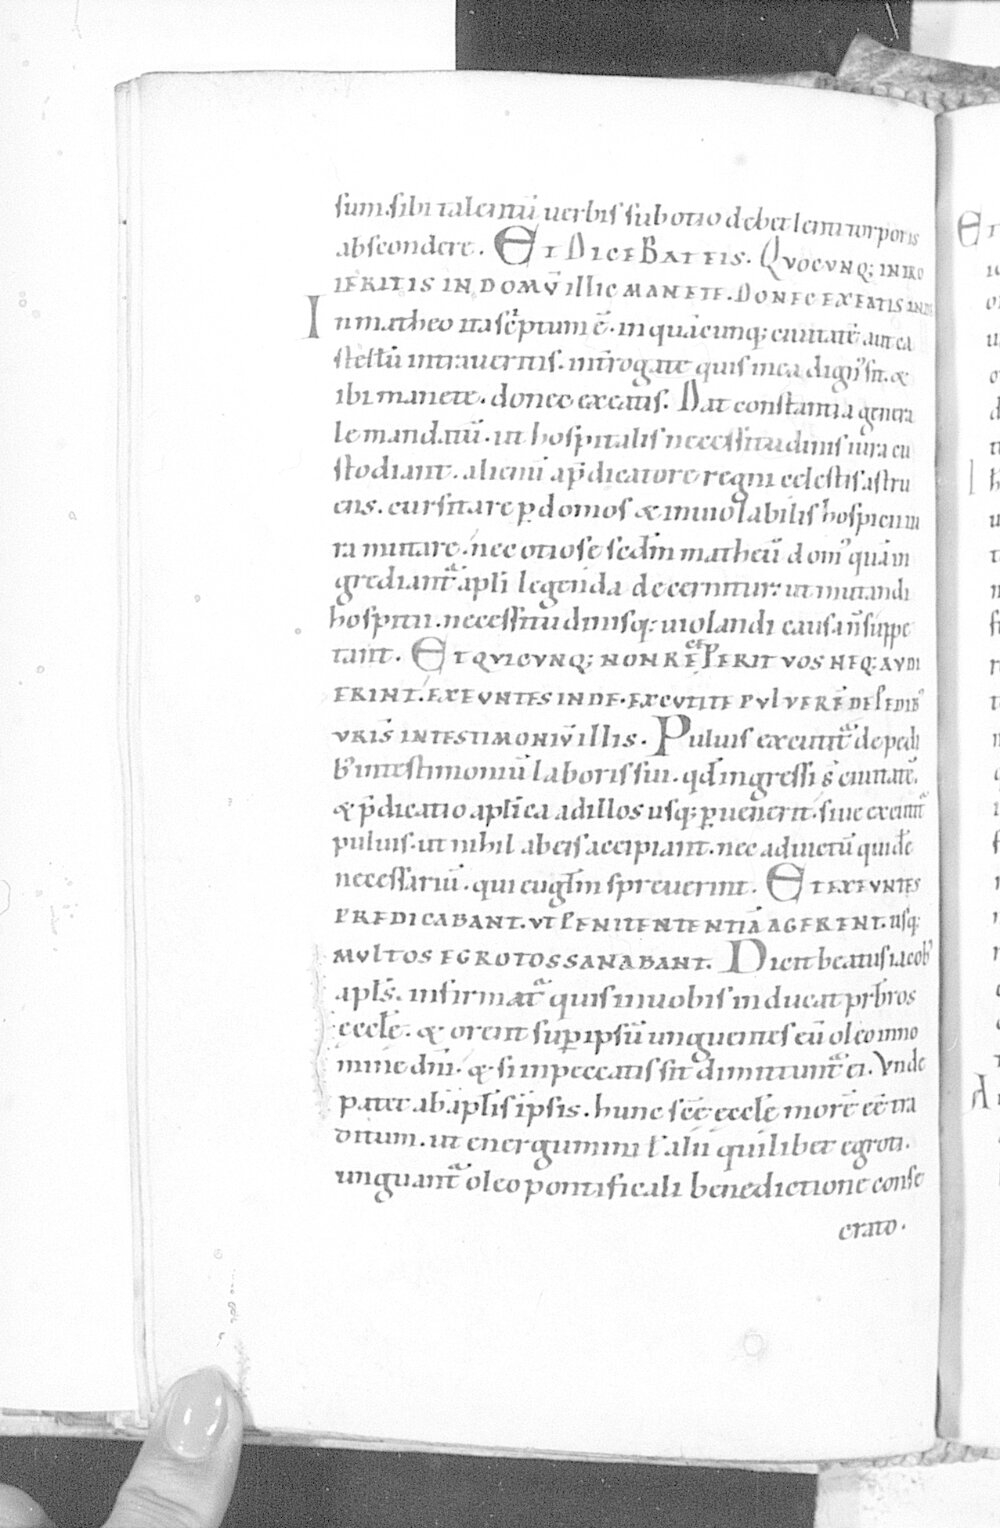 sum. sibi talentū uerbis sub otio debet lentı torporis
abscondere. ET DICEBAT EIS. QUOCUNQ; INTRO
IERITIS IN DOMŪ ILLIC MANETE. DONEC EXEATIS INDE
In matheo ita scͥptum ē. in quācunq; ciuitatē aut ca
stellū intraueritis. intͥrogate quis in ea dignꝰ sit. &
ibi manete. donec exeatis. Dat constantia genera
le mandatū. ut hospitalis necessitudinis iura cu
stodiant. alienū a p̄dicatore regni celestis astru
ens. cursitare ꝑ domos & inuiolabilis hospicii iu
ra mutare. nec otiose scdm̄ matheū domꝰ quā in
grediantͣ apli legenda decernitur: ut mutandi
hospitii. necessitudinisq; uiolandi causa ñ suppe
tant. ET QUICUNQ; NON RECEPERIT UOS NEQ; AUDI
ERINT. EXEUNTES INDE. EXCUTITE PULUERĒ DE PEDIBꝰ
UR̄IS IN TESTIMONIŪ ILLIS. Puluis excutitͣ de pedi
bꝰ in testimoniū laboris sui. qd̄ ingressi s̄ ciuitatē.
& p̄dicatio aplica ad illos usq; ꝑuenerit. siue excutitͣ
puluis. ut nihil ab eis accipiant. nec ad uictū quidē
necessariū. qui euglm̄ spreuerint. ET EXEUNTES
PREDICABANT. UT PENITENTENTIĀ AGERENT. usq;
MULTOS EGROTOS SANABANT. Dicit beatus iacobꝰ
apls̄. infirmatͣ quis in uobis inducat prb̄ros
eccle. & orent suꝑ ipsū unguentes eū oleo in no
mine dn̄i. & si in peccatis sit dimittuntͣ ei. Vnde
patet ab aplis ipsis. hunc sc̄e eccle morē eē tra
ditum. ut energumini ł alii quilibet egroti.
unguantͣ oleo pontificali benedictione conse
crato.